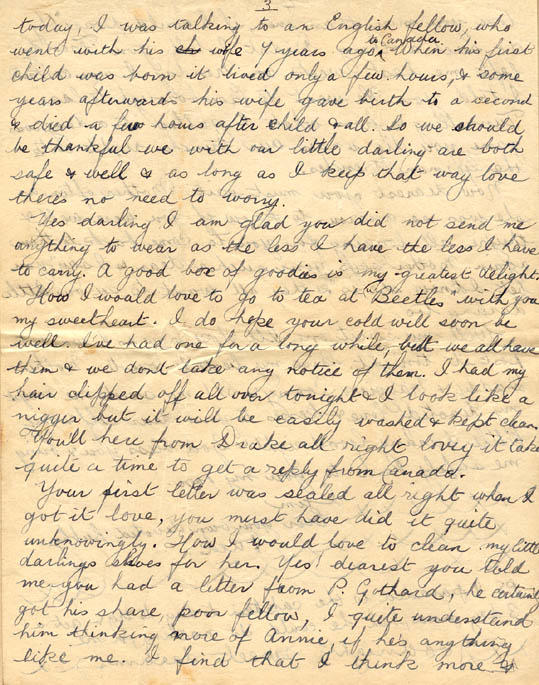 3
today, I was talking to an English fellow, who
went with his wife 7 years ago to Canada. When his first
child was born it lived only a few hours, & some
years afterwards his wife gave birth to a second
& died a few hours after child & all. So we should
be thankful we with our little darling are both
safe & well & as long as I keep that way love
theres no need to worry.
Yes darling I am glad you did not send me
anything to wear as the less I have the less I have
to carry. A good box of goodies is my greatest delight.
How I would love to go to tea at "Beetles" with you
my sweetheart. I do hope your cold will soon be
well. I've had one for a long while, but we all have
them & we don't take any notice of them. I had my
hair clipped off all over tonight & I look like a
nigger but it will be easily washed & kept clean.
You'll here from Drake all right lovey it takes
quite a time to get a reply from Canada.
Your first letter was sealed all right when I
got it love, you must have did it quite
unknowingly. How I would love to clean my little
darlings shoes for her. Yes dearest you told
me you had a letter from P. Gothard, he certainly
got his share, poor fellow, I quite understand
him thinking more of Annie, if hes anything
like me. I find that I think more &